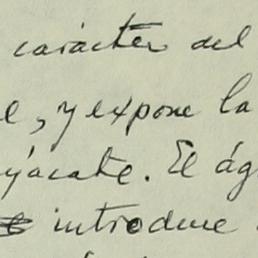 carácter del
e, y expone la
yácate. El ág
introduce